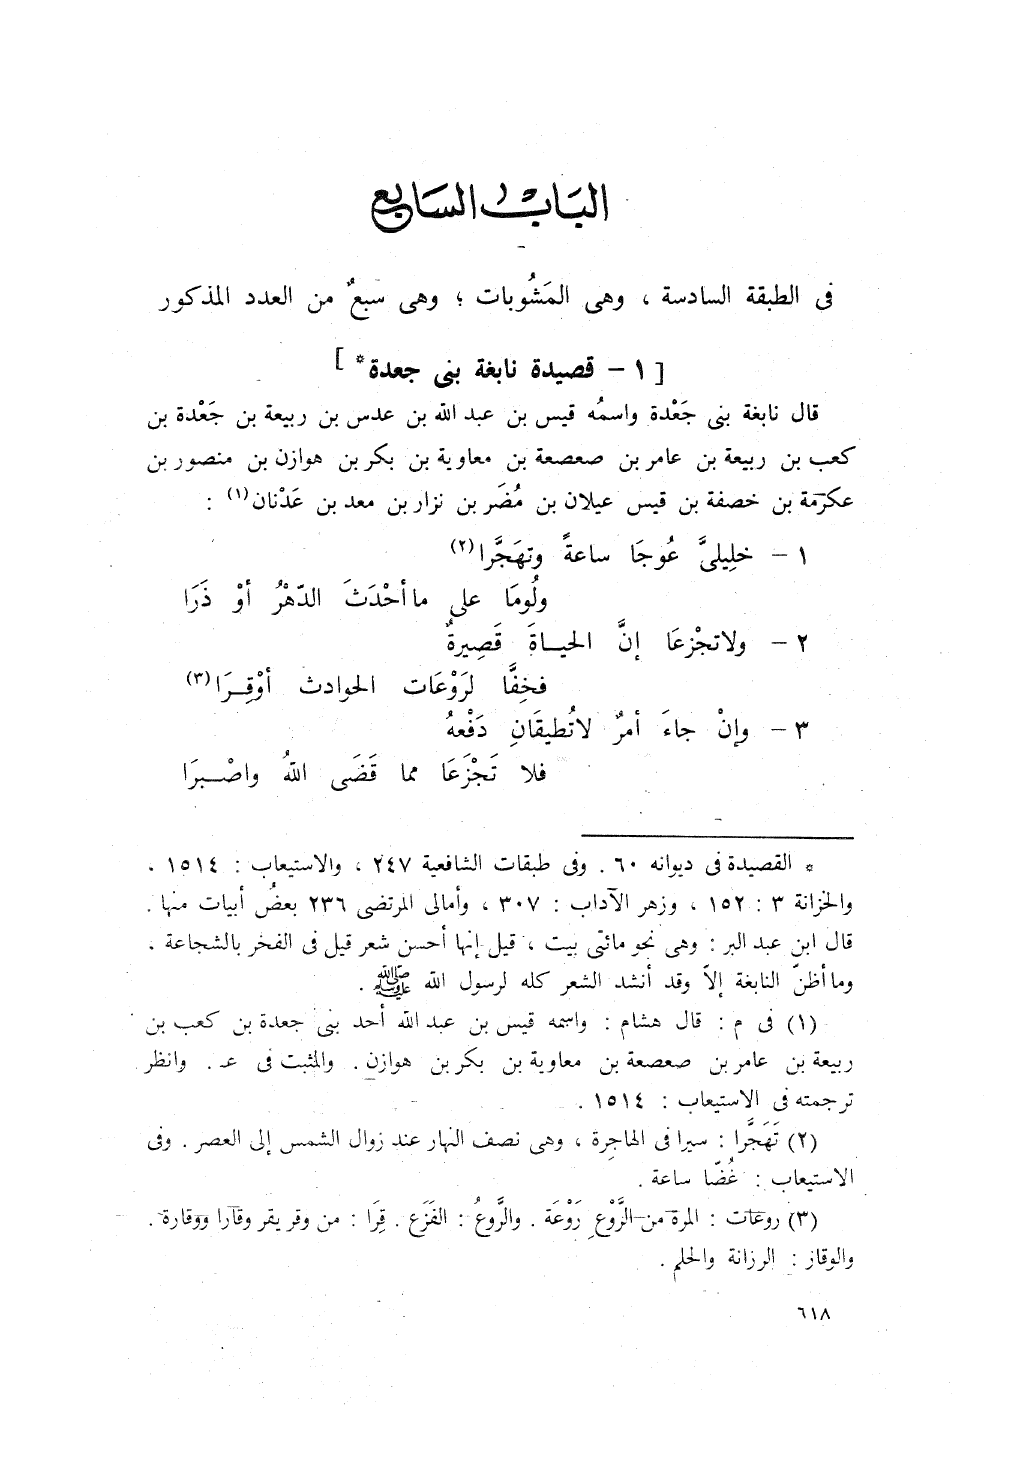 الباب السابع
فى الطبقة السادسة ، وهى المَشُوبات ؛ وهى سبعٌ من العدد المذكور
[ ١ – قصيدة نابغة بنى جعدة* ]
قال نابغة بنى جَعْدة واسمُه قيس بن عبد الله بن عدس بن ربيعة بن جَعْدة بن
كعب بن ربيعة بن عامر بن صعصعة بن معاوية بن بكر بن هوازن بن منصور بن
عكرمة بن خصفة بن قيس عيلان بن مُضَر بن نزار بن معد بن عَدْنان(١) :
١ – خلِيلىَّ عُوجَا ساعةً وتهَجَّرا(٢)
ولُومَا على ما أحْدَثَ الدّهْرُ أوْ ذَرَا
٢ – ولا تجْزعَا إنَّ الحياةَ قَصِيرةٌ
فخِفَّا لرَوْعَات الحوادث أوْقِرَا(٣)
٣ – وإنْ جاءَ أمرٌ لا تُطيقَانِ دَفْعهُ
فلا تَجْزَعَا مما قَضَى اللهُ واصْبرَا
* القصيدة فى ديوانه ٦٠ . وفى طبقات الشافعية ٢٤٧ ، والاستيعاب : ١٥١٤ .
والخزانة ٣ : ١٥٢ ، وزهر الآداب : ٣٠٧ ، وأمالى المرتضى ٢٣٦ بعضُ أبيات منها .
قال ابن عبد البر : وهى نحو مائتى بيت ، قيل إنها أحسن شعر قيل فى الفخر بالشجاعة .
وما أظنّ النابغة إلاّ وقد أنشد الشعر كله لرسول الله ﷺ .
(١) فى م : قال هشام : واسمه قيس بن عبد الله أحد بنى جعدة بن كعب بن
ربيعة بن عامر بن صعصعة بن معاوية بن بكر بن هوازن . والمثبت فى عـ . وانظر
ترجمته فى الاستيعاب : ١٥١٤ .
(٢) تَهَجَّرا : سيرا فى الهاجِرة ، وهى نصف النهار عند زوال الشمس إلى العصر . وفى
الاستيعاب : غُضّا ساعة .
(٣) روعات : المرة من الرَّوْعِ رَوْعَة . والرَّوعُ : الفَزَع . قِرَا : من وقر يقر وقارا ووقارة .
والوقار : الرزانة والحلم .
٦١٨